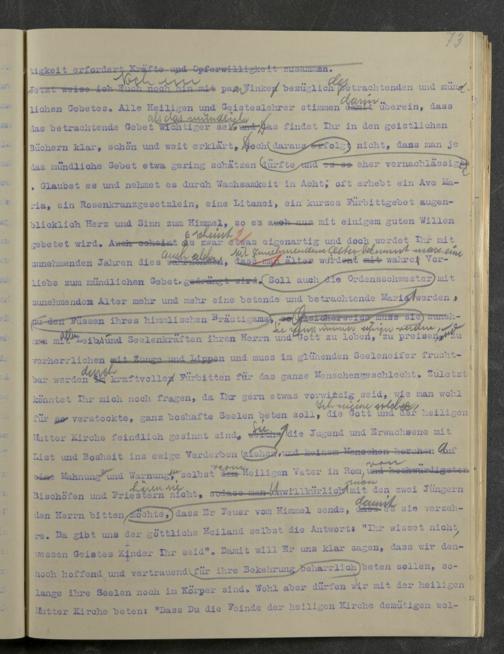 73
tigkeit erfordert Kräfte und Opferwilligkeit zusammen.
Noch ein des
Jetzt weise ich Euch noch hin mit paar Winken bezüglich betrachtenden und münd-
lichen Gebetes. Alle Heiligen und Geisteslehrer stimmen darin überein, dass
als das mündliche
das betrachtende Gebet wichtiger sei und das findet Ihr in den geistlichen
Büchern klar, schön und weit erklärt, doch daraus erfolgt nicht, dass man je
das mündliche Gebet etwa gering schätzen dürfte und es so eher vernachlässige
. Glaubet es und nehmet es durch Wachsamkeit in Acht, oft erhebt ein Ave Ma-
ria, ein Rosenkranzgesetzlein, eine Litanei, ein kurzes Fürbittgebet augen-
blicklich Herz und Sinn zum Himmel, so es auch nur mit einigem guten Willen
scheint
gebetet wird. Auch scheint es zwar etwas eigenartig und doch werdet Ihr mit
auch alles mit zunehmendem Alter bekommt man eine
zunehmenden Jahren dies dass mit älter wurdent mit wahrer Vor-
liebe zum mündlichen Gebet gedrängt wird. Soll auch die Ordensschwester mit
zunehmendem Alter mehr und mehr eine betende und betrachtende Maria werden,
zu den Füssen ihres himmlischen Bräutigams, so gleicherweise muss sie zunah-
alle und
men mit Leib und Seelenkräften ihren Herrn und Gott zu loben, zu preisen, zu
verherrlichen mit Zunge und Lippen und muss im glühenden Seeleneifer frucht-
durch
bar werden in kraftvollen Fürbitten für das ganze Menschengeschlecht. Zuletzt
könntet Ihr mich noch fragen, da Ihr gern etwas vorwitzig seid, wie man wohl
Ich meine solche,
für so verstockte, ganz boshafte Seelen beten soll, die Gott und der heiligen
Mutter Kirche feindlich gesinnt sind, die Jugend und Erwachsene mit
List und Bosheit ins ewige Verderben ziehen, und keinem Menschen beruhen Auf
vom von
eine Mahnung und Warnung, selbst vom Heiligen Vater in Rom, und hochwürdigsten
hören sie
Bischöfen und Priestern nicht, sodass man Unwillkürlich mit den zwei Jüngern
damit
den Herrn bitten möchte, dass Er Feuer vom Himmel sende, dass es sie verzeh-
re. Da gibt uns der göttliche Heiland selbst die Antwort: "Ihr wisset nicht,
wessen Geistes Kinder Ihr seid". Damit will Er uns klar sagen, dass wir den-
noch hoffend und vertrauend für ihre Bekehrung beharrlich beten sollen, so-
lange ihre Seelen noch im Körper sind. Wohl aber dürfen wir mit der heiligen
Mutter Kirche beten: "Dass Du die Feinde der heiligen Kirche demütigen wol-